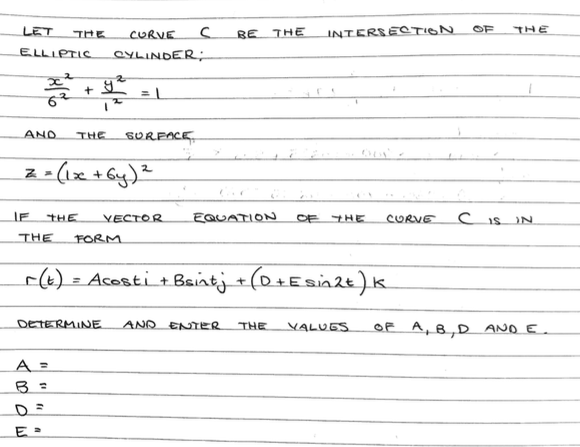 LET THE CURVE C BE THE INTERSECTION OF THE
ELLIPTIC CYLINDER;
x²/6² + y²/1² = 1
AND THE SURFACE,
z = (1x + 6y)²
IF THE VECTOR EQUATION OF THE CURVE C IS IN
THE FORM
r(t) = Acosti + Bsintj + (D + E sin2t) k
DETERMINE AND ENTER THE VALUES OF A, B, D AND E.
A =
B =
D =
E =